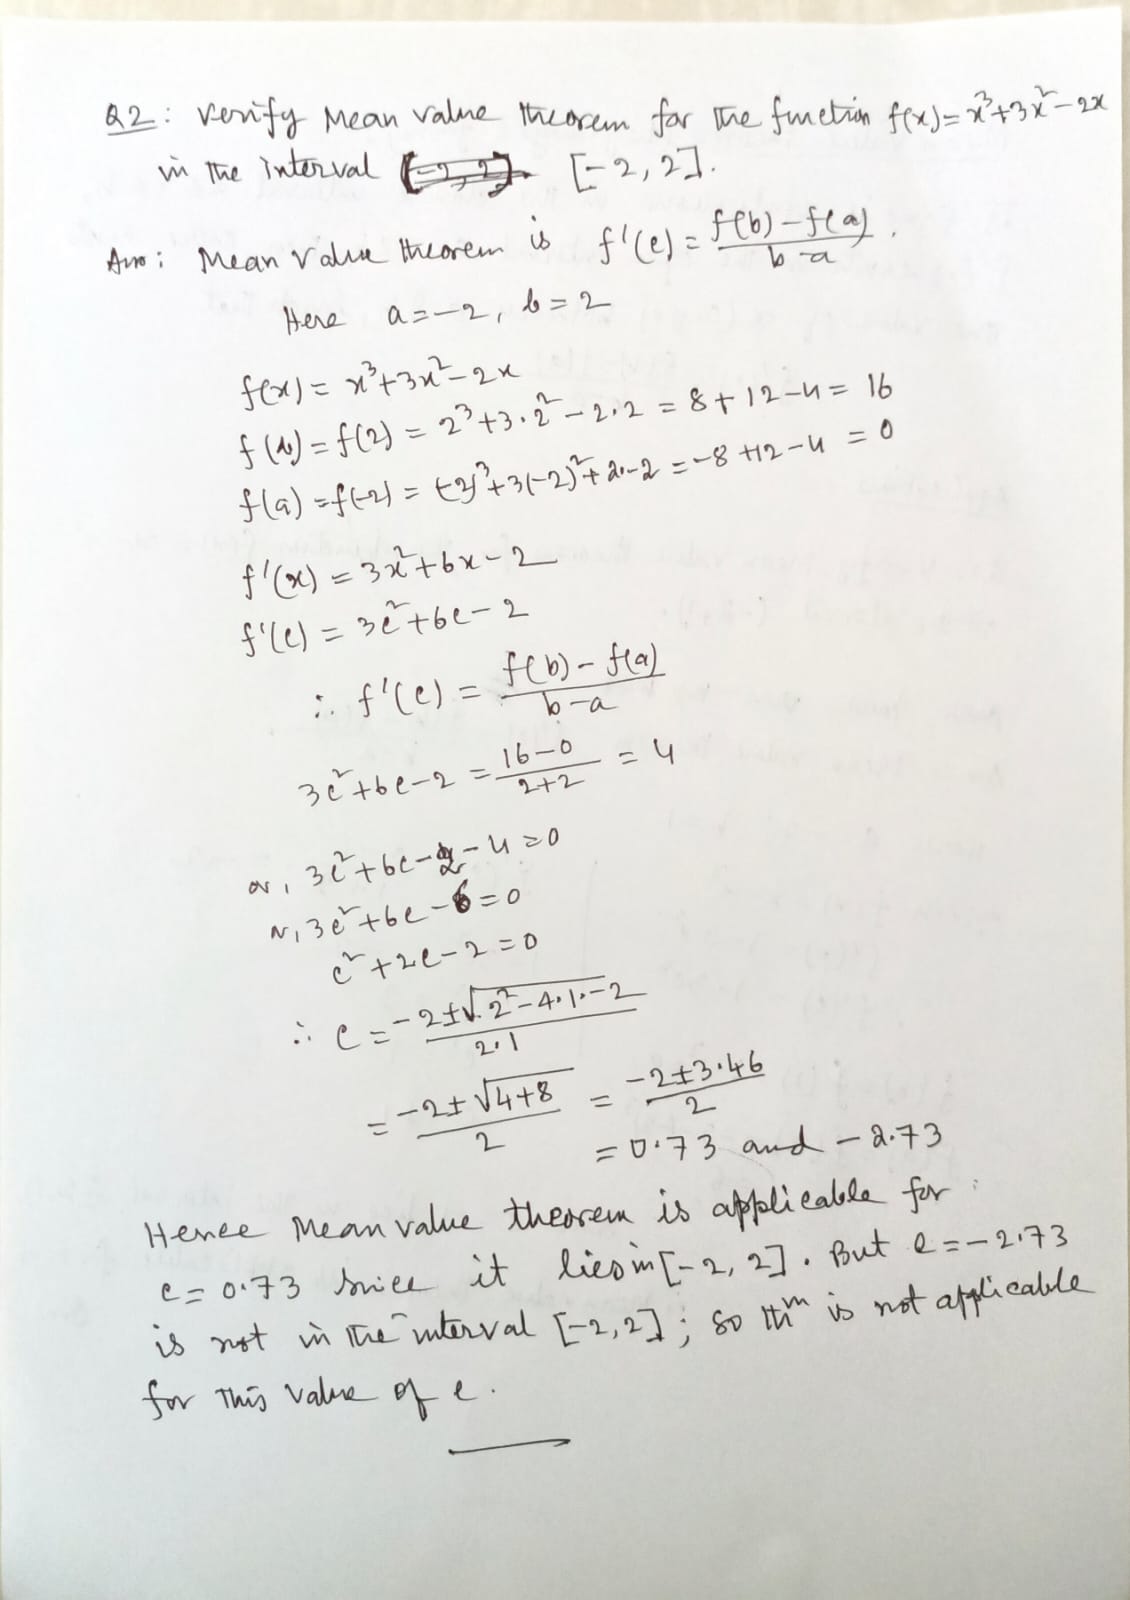 Q2: Verify Mean value theorem for the function f(x)=x³+3x²-2x
in the interval [-2, 2].
Ans: Mean value theorem is f'(c) = (f(b)-f(a))/(b-a).
Here a=-2, b=2
f(x) = x³+3x²-2x
f(b) = f(2) = 2³+3·2²-2·2 = 8+12-4 = 16
f(a) = f(-2) = (-2)³+3(-2)²+2·-2 = -8+12-4 = 0
f'(x) = 3x²+6x-2
f'(c) = 3c²+6c-2
∴ f'(c) = (f(b)-f(a))/(b-a)
3c²+6c-2 = (16-0)/(2+2) = 4
or, 3c²+6c-2-4=0
or, 3c²+6c-6=0
c²+2c-2=0
∴ c = (-2±√(2²-4·1·-2))/(2·1)
= (-2±√(4+8))/2 = (-2±3.46)/2
= 0.73 and -2.73
Hence Mean value theorem is applicable for
c=0.73 since it lies in [-2, 2]. But c=-2.73
is not in the interval [-2,2]; so thm is not applicable
for this value of c.